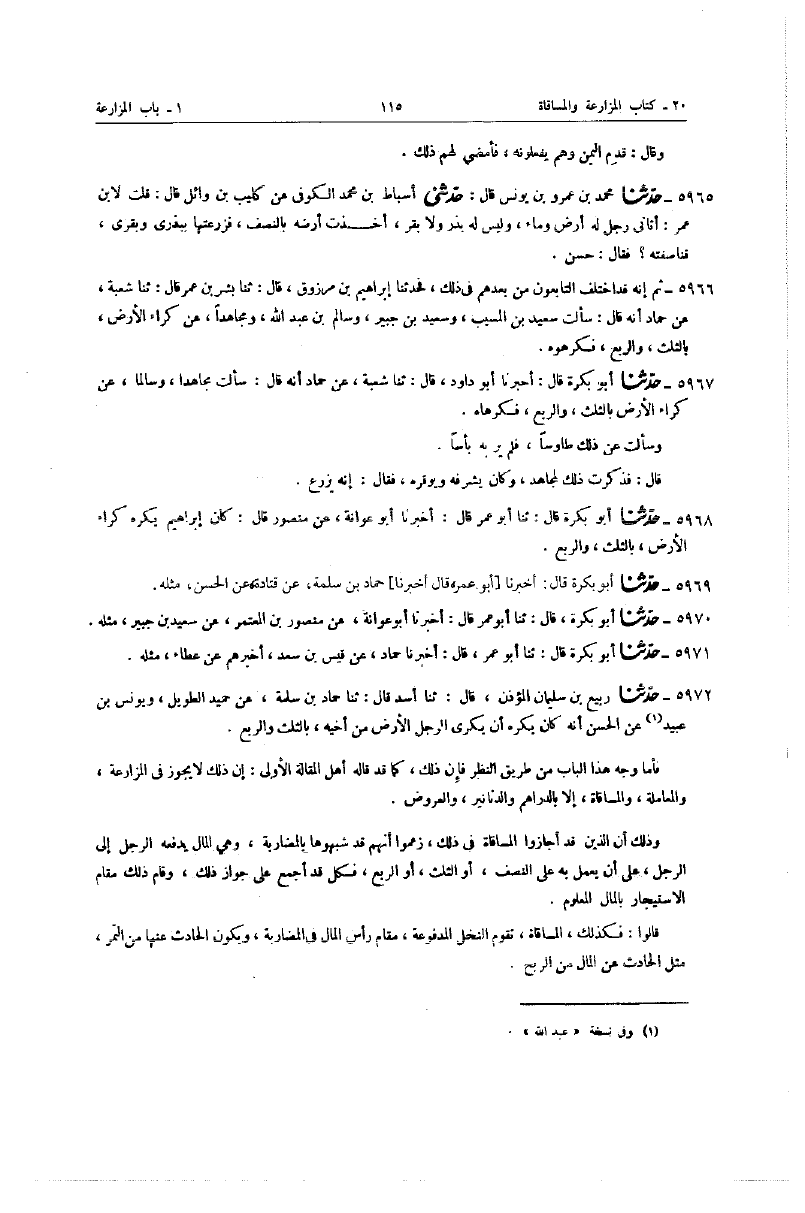 ٢٠ ـ كتاب المزارعة والمساقاة ١١٥ ١ ـ باب المزارعة
وقال : قدم اليمن وهم يفعلونه ، فأمضي لهم ذلك .
٥٩٦٥ ـ حدّثنا محمد بن عمرو بن يونس قال : حدّثني أسباط بن محمد الكوفى عن كليب بن وائل قال : قلت لابن
عمر : أتانى رجل له أرض وماء ، وليس له بذر ولا بقر ، أخذت أرضه بالنصف ، فزرعتها ببذرى وبقرى ،
فناصفته ؟ فقال : حسن .
٥٩٦٦ ـ ثم إنه قد اختلف التابعون من بعدهم فى ذلك ، فحدثنا إبراهيم بن مرزوق ، قال : ثنا بشر بن عمر قال : ثنا شعبة ،
عن حماد أنه قال : سألت سعيد بن المسيب ، وسعيد بن جبير ، وسالم بن عبد الله ، ومجاهداً ، عن كراء الأرض ،
بالثلث ، والربع ، فكرهوه .
٥٩٦٧ ـ حدّثنا أبو بكرة قال : أخبرنا أبو داود ، قال : ثنا شعبة ، عن حماد أنه قال : سألت مجاهدا ، وسالما ، عن
كراء الأرض بالثلث ، والربع ، فكرهاه .
وسألت عن ذلك طاوساً ، فلم ير به بأساً .
قال : فذكرت ذلك لمجاهد ، وكان يشرفه ويوقره ، فقال : إنه يزرع .
٥٩٦٨ ـ حدّثنا أبو بكرة قال : ثنا أبو عمر قال : أخبرنا أبو عوانة ، عن منصور قال : كان إبراهيم يكره كراء
الأرض ، بالثلث ، والربع .
٥٩٦٩ ـ حدّثنا أبو بكرة قال: أخبرنا [أبو عمر، قال أخبرنا] حماد بن سلمة، عن قتادة، عن الحسن، مثله.
٥٩٧٠ ـ حدّثنا أبو بكرة ، قال : ثنا أبو عمر قال : أخبرنا أبو عوانة ، عن منصور بن المعتمر ، عن سعيد بن جبير ، مثله .
٥٩٧١ ـ حدّثنا أبو بكرة قال : ثنا أبو عمر ، قال : أخبرنا حماد ، عن قيس بن سعد ، أخبرهم عن عطاء ، مثله .
٥٩٧٢ ـ حدّثنا ربيع بن سليمان المؤذن ، قال : ثنا أسد قال : ثنا حماد بن سلمة ، عن حميد الطويل ، ويونس بن
عبيد(١) عن الحسن أنه كان يكره أن يكرى الرجل الأرض من أخيه ، بالثلث والربع .
فأما وجه هذا الباب من طريق النظر فإن ذلك ، كما قد قاله أهل المقالة الأولى : إن ذلك لايجوز فى المزارعة ،
والمعاملة ، والمساقاة ، إلا بالدراهم والدنانير ، والعروض .
وذلك أن الذين قد أجازوا المساقاة فى ذلك ، زعموا أنهم قد شبهوها بالمضاربة ، وهي المال يدفعه الرجل إلى
الرجل ، على أن يعمل به على النصف ، أو الثلث ، أو الربع ، فكل قد أجمع على جواز ذلك ، وقام ذلك مقام
الاستيجار بالمال المعلوم .
قالوا : فكذلك ، المساقاة ، تقوم النخل المدفوعة ، مقام رأس المال فى المضاربة ، ويكون الحادث عنها من التمر ،
مثل الحادث عن المال من الربح .
(١) وفى نسخة « عبد الله » .